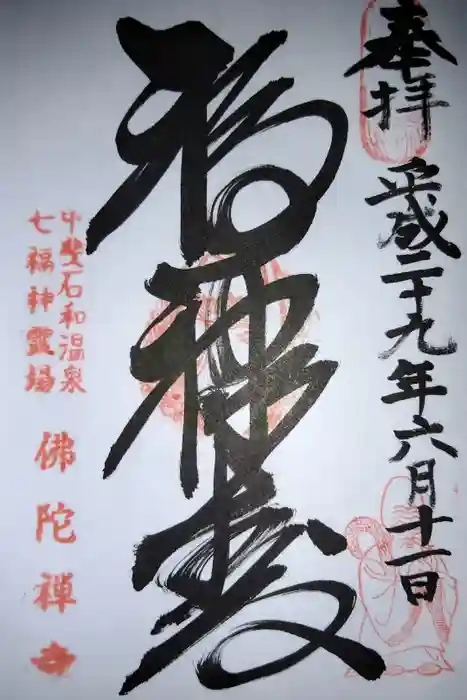 奉拝
平成二十九年六月十一日
福神壽
甲斐石和温泉
七福神霊場
佛陀禅寺